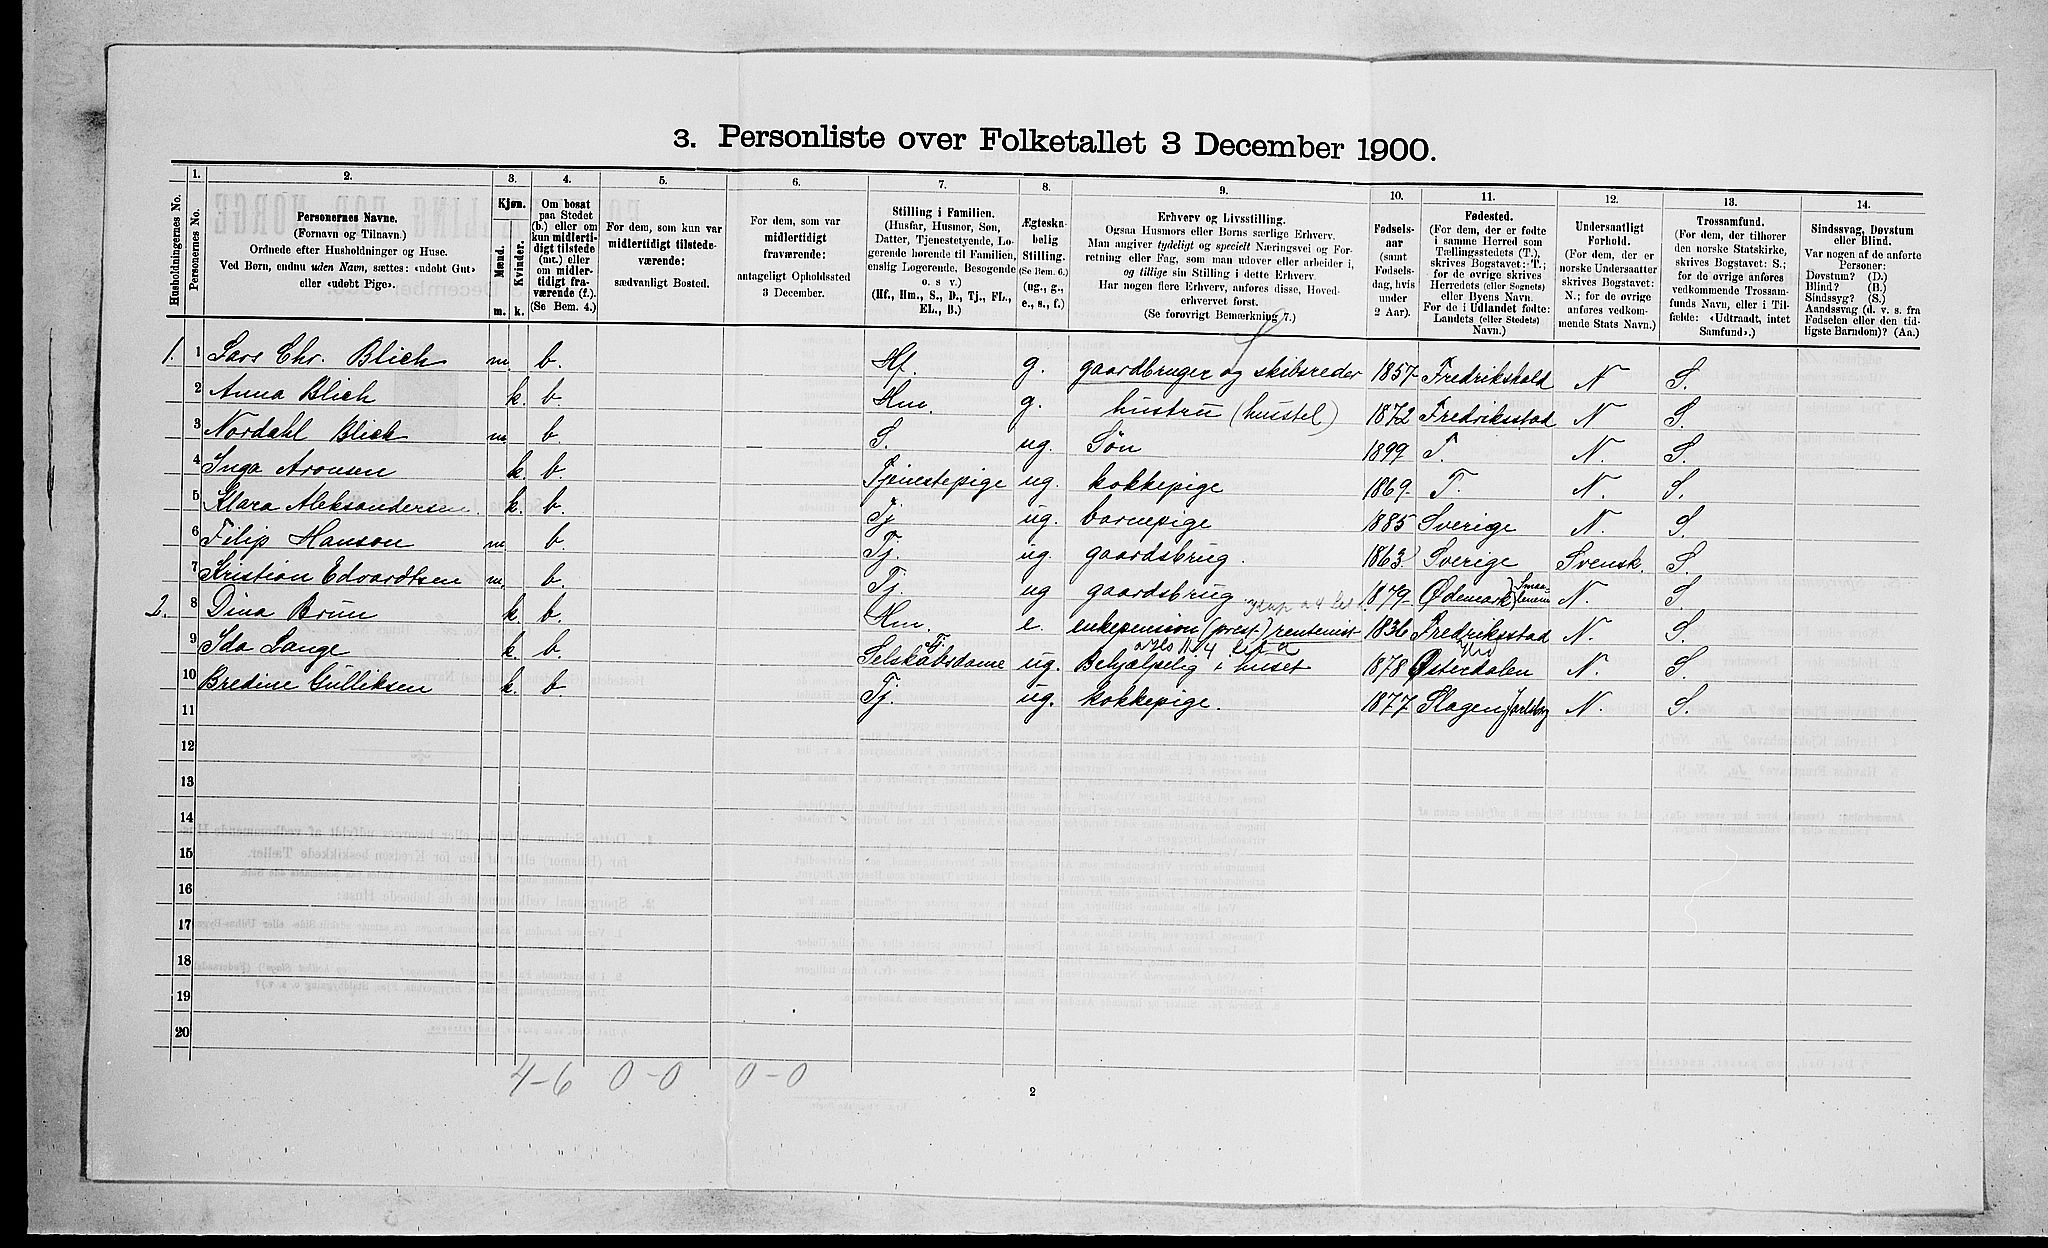 3. Personliste over Folketallet 3 December 1900.
Husholdningernes No.
1. Personernes No.
2. Personernes Navne.
(Fornavn og Tilnavn.)
Ordnede efter Husholdninger og Huse.
Ved Børn, endnu uden Navn, sættes: «udøbt Gut»
eller «udøbt Pige».
3. Kjøn.
Mænd. Kvinder.
m. k.
4. Om bosat
paa Stedet
(b.) eller om
kun midlerti-
digt tilstede
(mt.) eller
om midler-
tidigt fra-
værende (f.).
(Se Bem. 4.)
5. For dem, som kun var
midlertidigt tilstede-
værende:
sædvanligt Bosted.
6. For dem, som var
midlertidigt
fraværende:
antageligt Opholdssted
3 December.
7. Stilling i Familien.
(Husfar, Husmor, Søn,
Datter, Tjenestetyende, Lo-
gerende hørende til Familien,
enslig Logerende, Besøgende
o. s v.)
(Hf., Hm., S., D., Tj., FL.,
EL., B.)
8. Ægtesk̲a-
belig
Stilling.
(Se Bem. 6.)
(ug., g.,
e., s., f.)
9. Erhverv og Livsstilling.
Ogsaa Husmors eller Børns særlige Erhverv.
Man angiver tydeligt og specielt Næringsvei og For-
retning eller Fag, som man udøver eller arbeider i,
og tillige sin Stilling i dette Erhverv.
Har nogen flere Erhverv, anføres disse, Hoved-
erhvervet først.
(Se forøvrigt Bemærkning 7.)
10. Fødsels-
aar
(samt
Fødsels-
dag, hvis
under
2 Aar).
11. Fødested.
(For dem, der er fødte
i samme Herred som
Tællingsstedets (T.),
skrives Bogstavet: T.;
for de øvrige skrives
Herredets (eller Sognets)
eller Byens Navn.
For de i Udlandet fødte:
Landets (eller Stedets)
Navn.)
12. Undersaatligt
Forhold.
(For dem, der er
norske Undersaatter
skrives Bogstavet:
N.; for de øvrige
anføres vedkom-
mende Stats Navn.)
13. Trossamfund.
(For dem, der tilhører
den norske Statskirke,
skrives Bogstavet: S.;
for de øvrige anføres
vedkommende Trossam-
funds Navn, eller i Til-
fælde: «Udtraadt, intet
Samfund».)
14. Sindssvag, Døvstum
eller Blind.
Var nogen af de anførte
Personer:
Døvstum? (D.)
Blind? (B.)
Sindssyg? (S.)
Aandssvag (d. v. s. fra
Fødselen eller den tid-
ligste Barndom)? (Aa.)
1. 1 Lars Chr. Blich m. b. Hf. g. gaardbruger og skibsreder 1857 Fredrikshald N S.
2 Anna Blich k. b. Hm. g. hustru (hustel) 1872 Fredriksstad N S.
3 Nordahl Blich m b. S. ug. Søn 1899 T. N. S.
4 Inga Aronsen k. b. Tjenestepige ug. kokkepige 1869. T. N. S.
5 Klara Aleksandersen. k. b. Tj ug. barnepige 1885 Sverige N. S.
6 Filip Hanson m b. Tj. ug. gaardsbrug. 1863. Sverige Svensk. S.
7 Kristian Edvardtsen m. b. Tj. ug gaardsbrug 1879. Ødemark Smaalenene N. S.
2. 8 Dina Brun k. b. Hm. e. enkepension (prest.) rentenist 1836 Fredriksstad N. S.
9 Ida Lange k. b. Tj Selskabsdame ug. Behjælpelig i huset 1878 Østerdalen N. S.
10 Bredine Gulliksen k. b Tj. ug. kokkepige. 1877 Slagen Jarlsberg N. S.
11
12
13
14
15
16
17
18
19
20
4-6 0-0 0-0
2